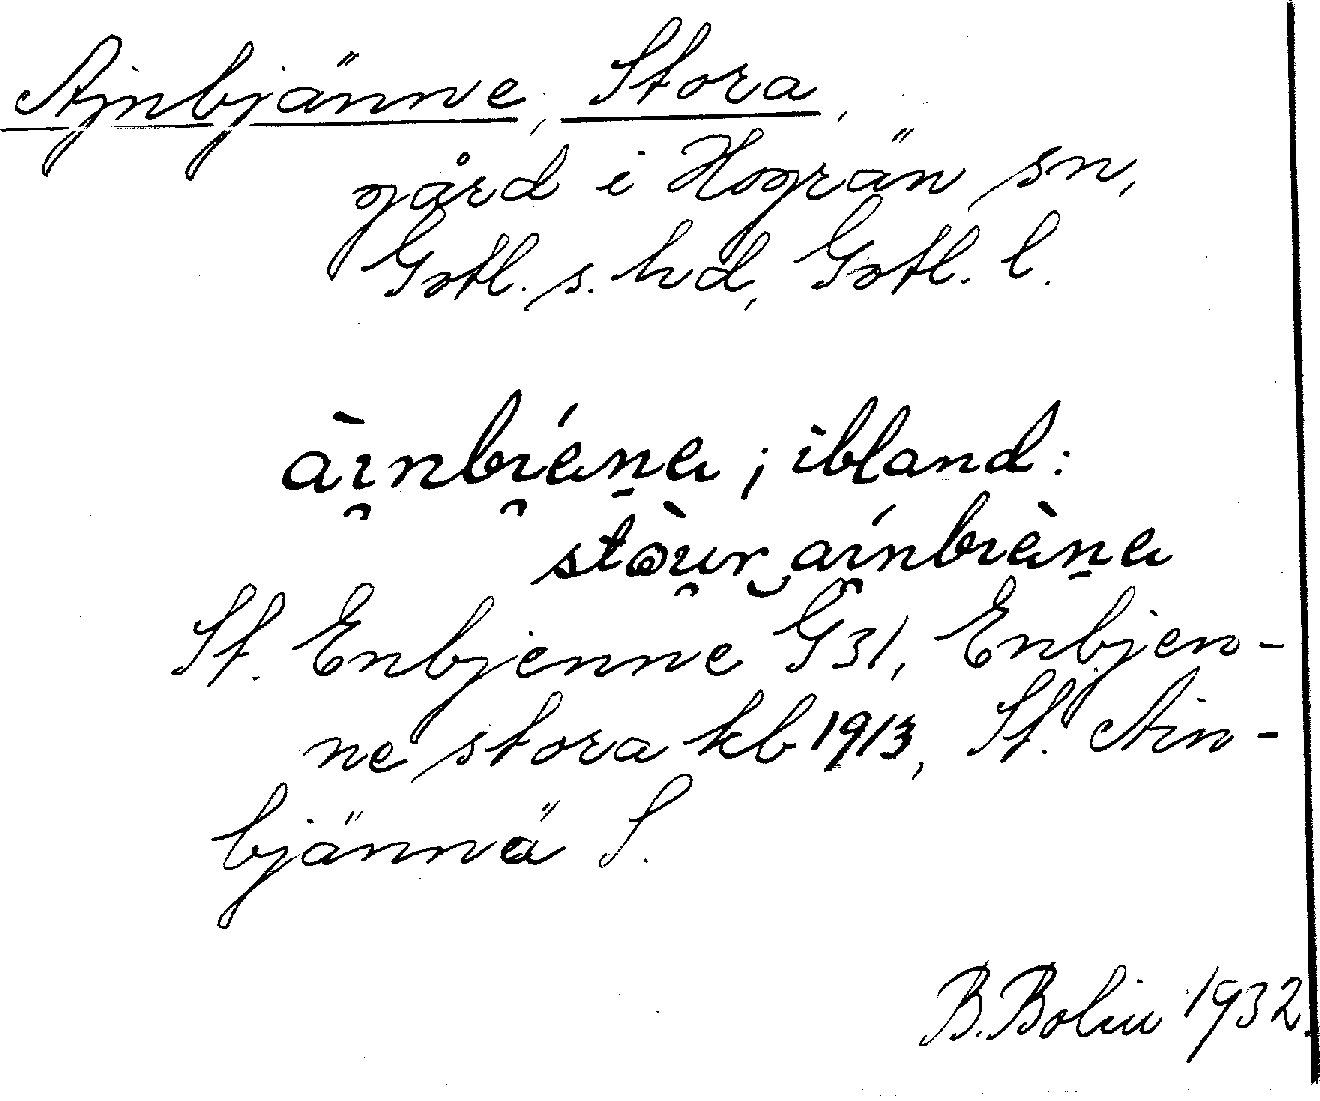 Ajnbjänne, Stora,
gård i Hogrän sn,
Gotl. s. hd, Gotl. l.
àɪ̯nbɪ̯éna̱ ; ibland:
stòu̯r‿aɪ̯́nbɪèṉa
St. Enbjenne G31, Enbjen-
ne stora kb 1913, St. Ain-
bjännä S.
B. Bolin 1932.